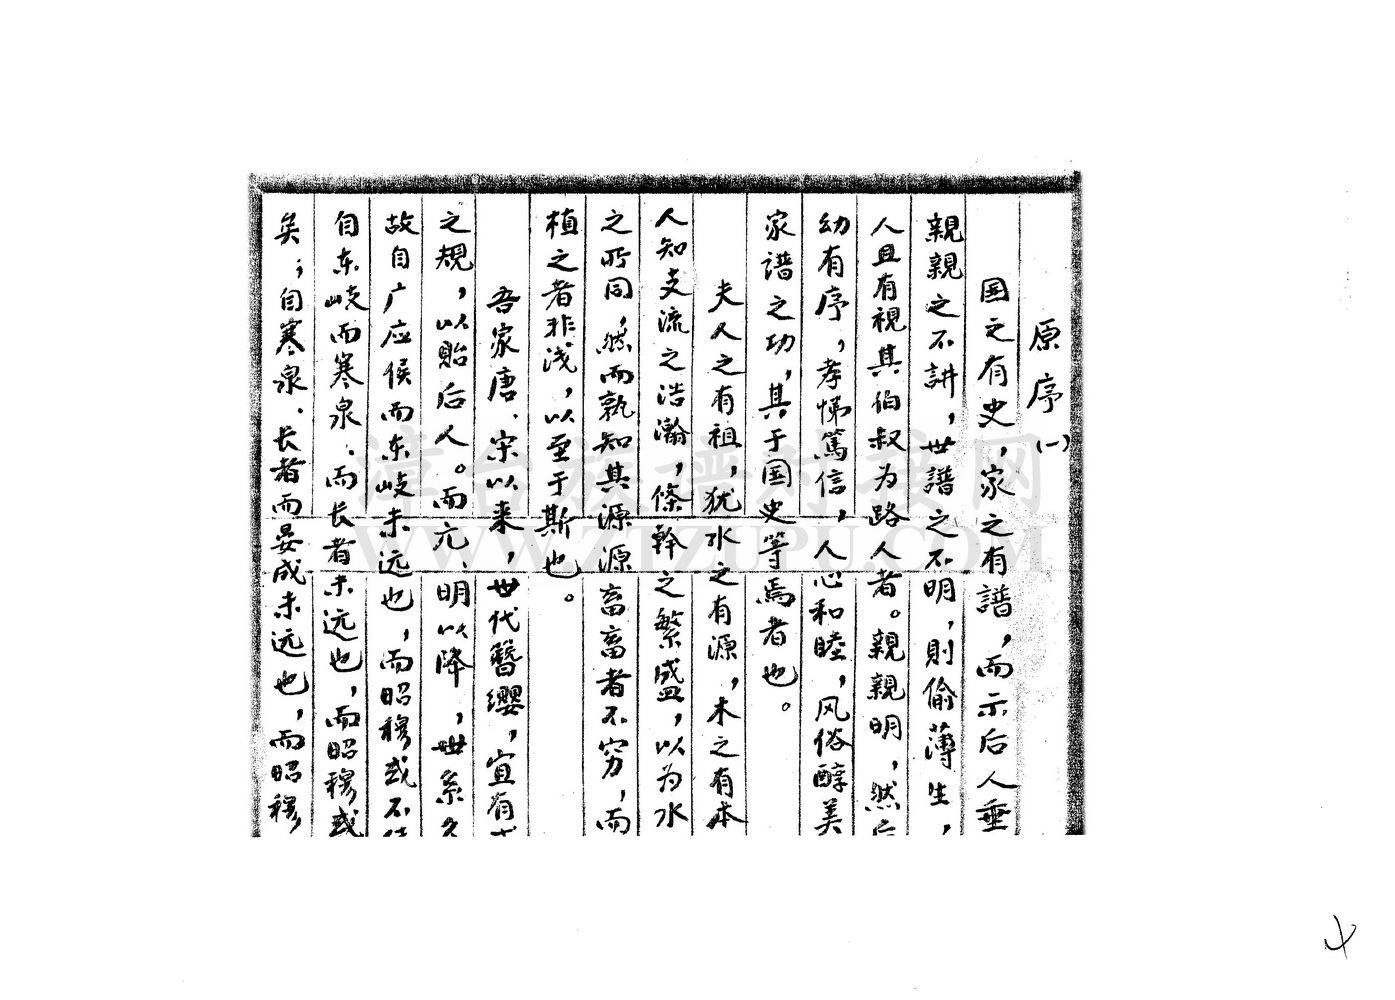 原序(一)
国之有史，家之有譜，而示后人垂
親親之不讲，世譜之不明，則偷薄生，
人且有視其伯叔为路人者。親親明，然后
幼有序，孝悌篤信，人心和睦，风俗醇美
家谱之功，其于国史等焉者也。
夫人之有祖，犹水之有源，木之有本
人知支流之浩瀚，條幹之繁盛，以为水
之所同，然而孰知其源源畜畜者不穷，而
植之者非浅，以至于斯也。
吾家唐、宋以来，世代簪缨，宜有
之規，以貽后人。而元、明以降，世系久
故自广应侯而东岐未远也，而昭穆或不
自东岐而寒泉、而长者未远也，而昭穆或
矣；自寒泉、长者而晏成未远也，而昭穆
漳台族谱对接网
WWW.ZTZUPU.COM